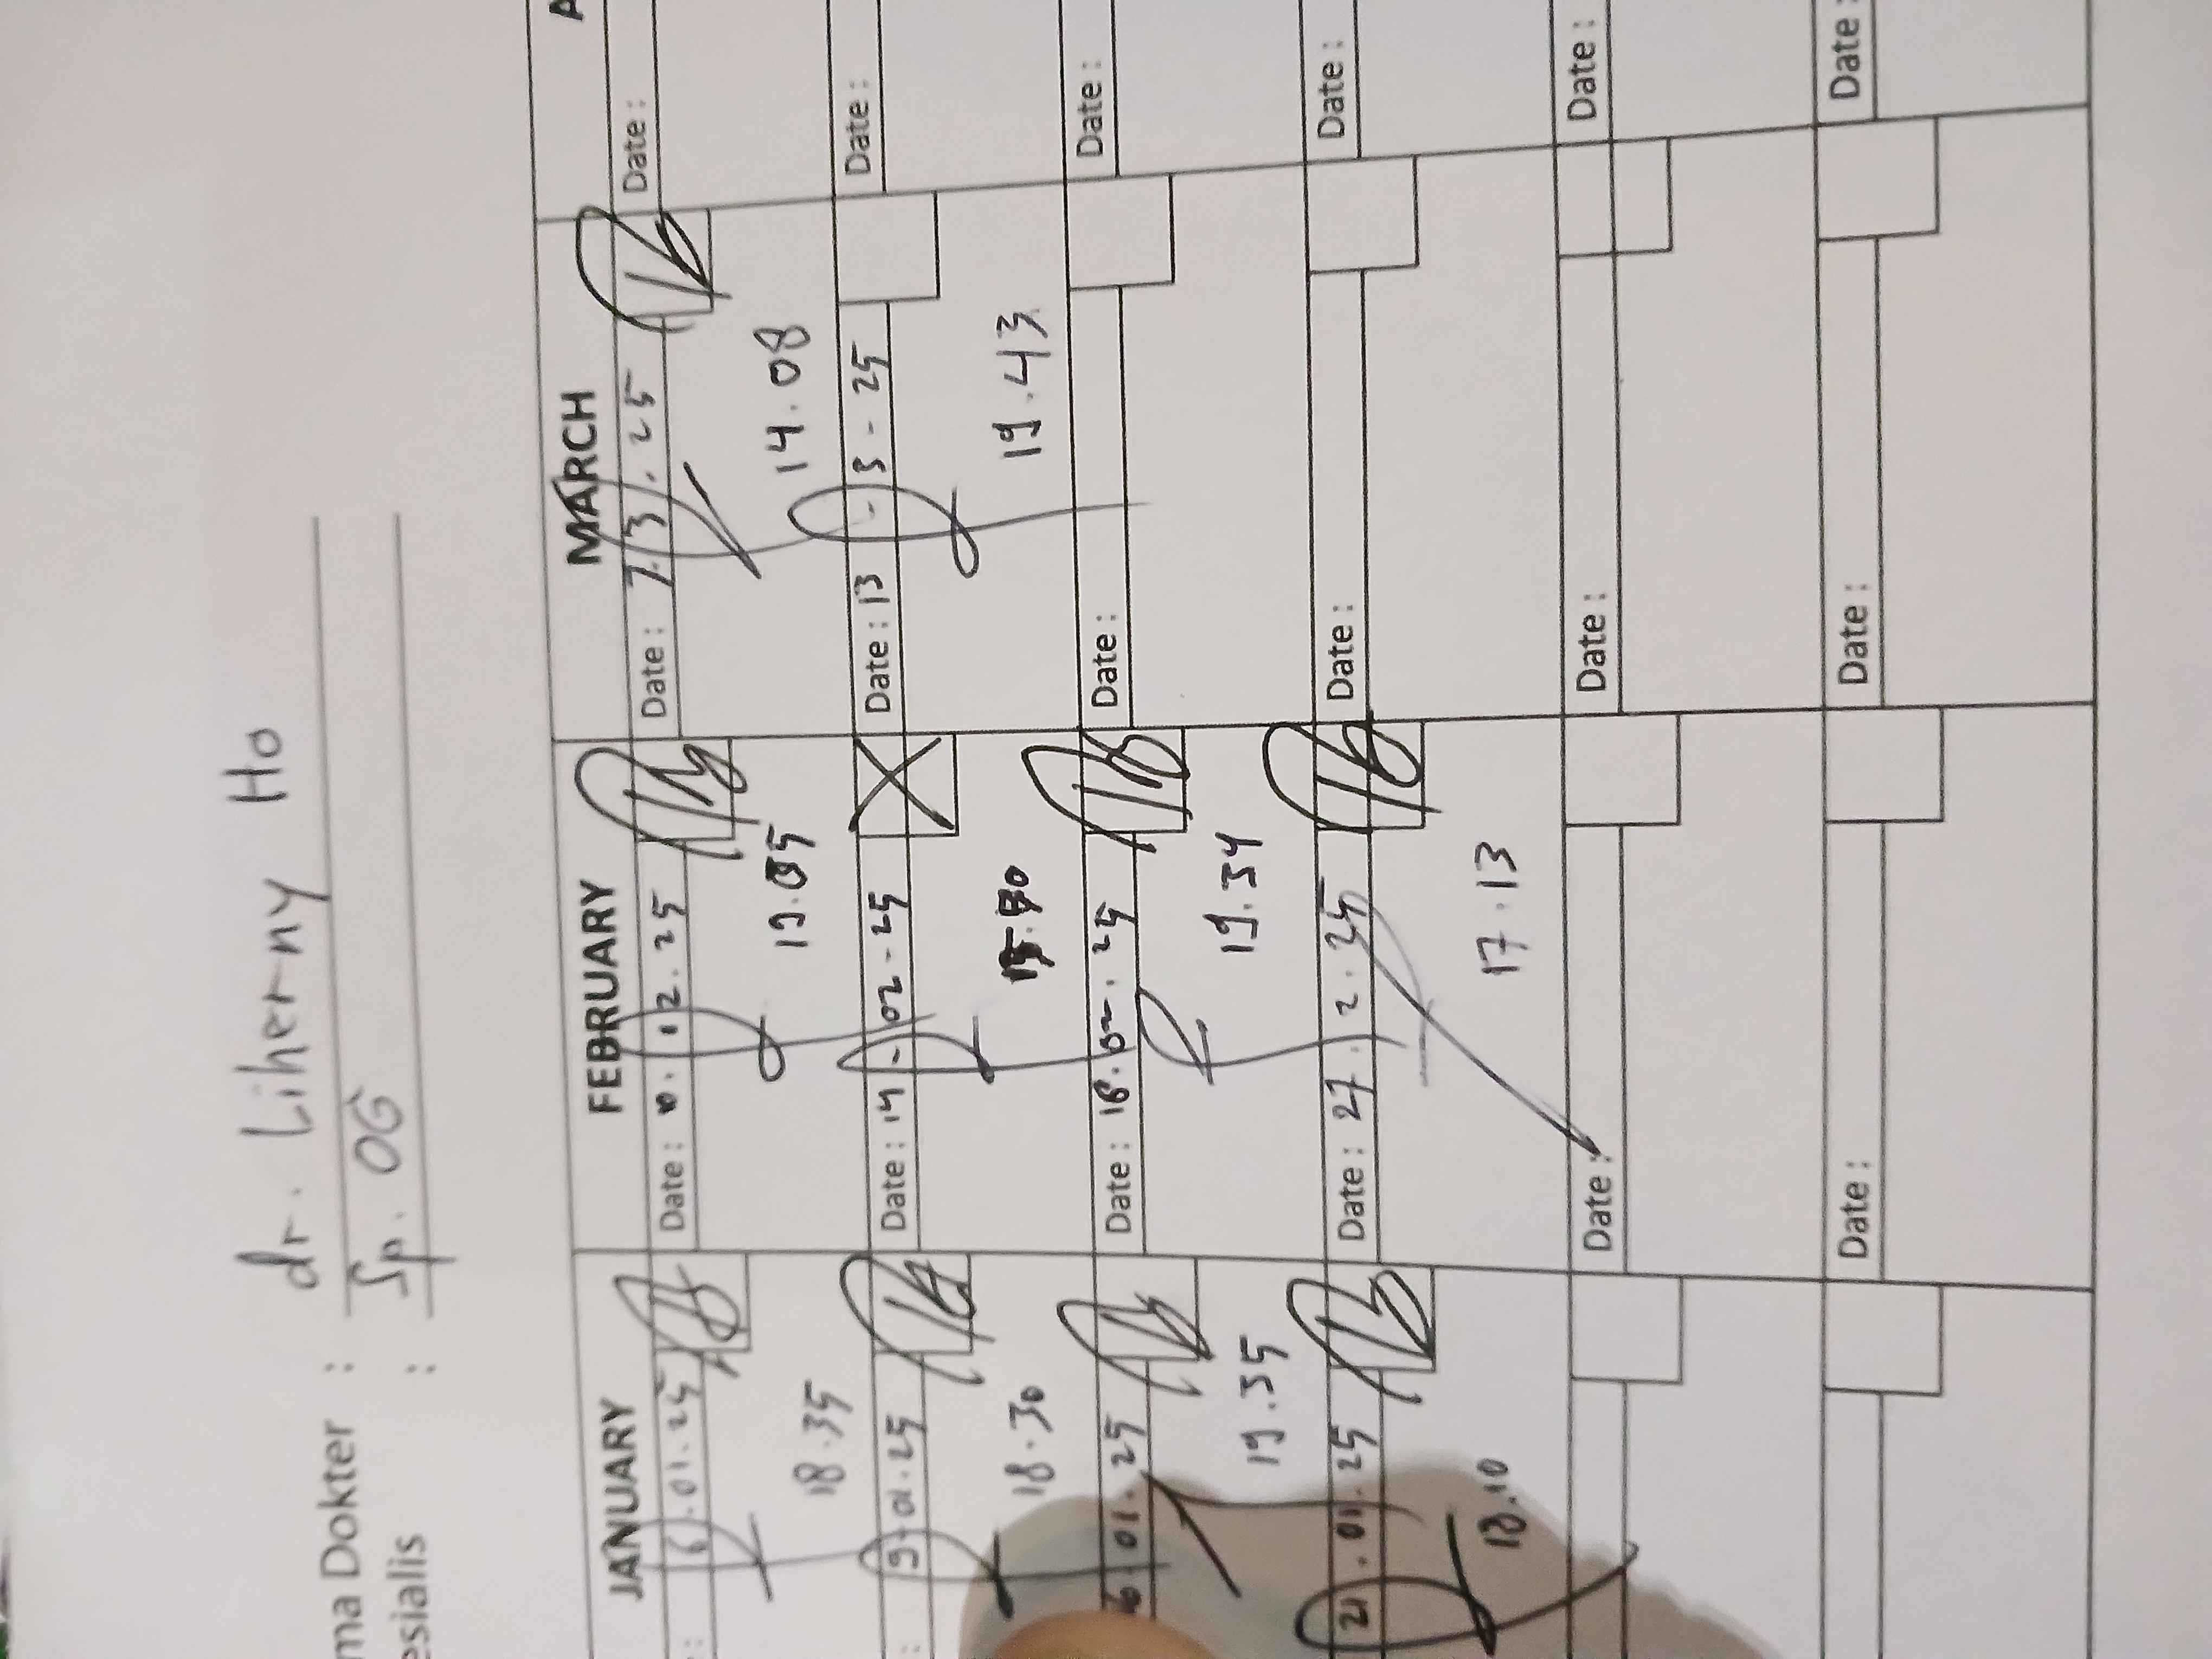 ma Dokter : dr. Liherny Ho
esialis : Sp. OG
JANUARY FEBRUARY MARCH A
: 6.01.25 Date : 02.25 Date : 7.3.25 Date :
18.35 19.05 14.08
: 9-01.25 Date : 14-02-25 Date : 13-3-25 Date :
18.30 19.43
6.01.25 Date : 18.02.25 Date : Date :
19.35 19.34
21.01.25 Date : 27.2.25 Date : Date :
18.10 17.13
Date : Date : Date :
Date : Date : Date :